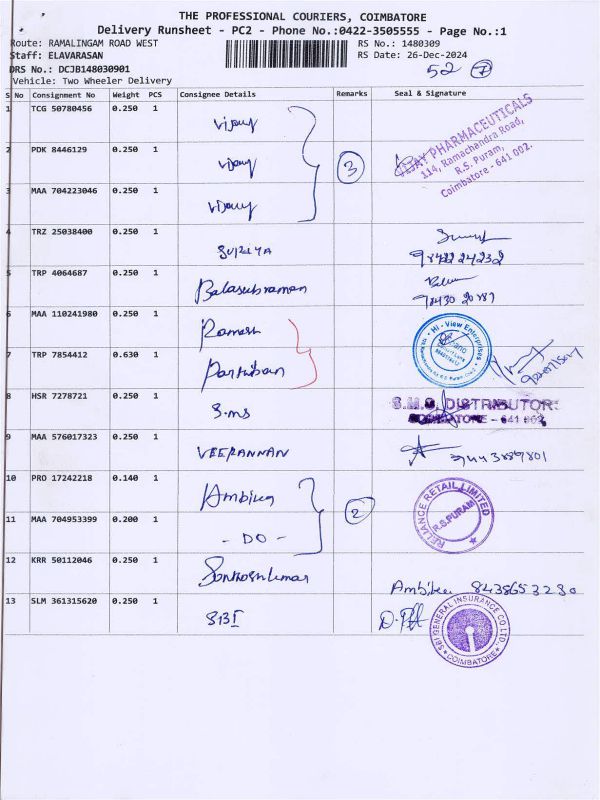 THE PROFESSIONAL COURIERS, COIMBATORE
Delivery Runsheet - PC2 - Phone No.:0422-3505555 - Page No.:1
Route: RAMALINGAM ROAD WEST RS No.: 1480309
Staff: ELAVARASAN RS Date: 26-Dec-2024
DRS No.: DCJB148030901 52 7
Vehicle: Two Wheeler Delivery
S No Consignment No Weight PCS Consignee Details Remarks Seal & Signature
1 TCG 50780456 0.250 1 Vijay
VIJAY PHARMACEUTICALS
114, Ramachandra Road,
R.S. Puram,
Coimbatore - 641 002.
2 PDK 8446129 0.250 1 Vijay 3
3 MAA 704223046 0.250 1 Vijay
4 TRZ 25038400 0.250 1 SUPRIYA
5 TRP 4064687 0.250 1 Balasubraman
6 MAA 110241980 0.250 1 Ramesh
Hi - View Enterprises
7 TRP 7854412 0.630 1 Parthiban
8 HSR 7278721 0.250 1 S.MS
S.M.S. DISTRIBUTORS
COIMBATORE - 641 002
9 MAA 576017323 0.250 1 VEERANNAN 9443889801
10 PRO 17242218 0.140 1 Ambika 2
RELIANCE RETAIL LIMITED
R.S.PURAM
11 MAA 704953399 0.200 1 - DO -
12 KRR 50112046 0.250 1 Santhoshkumar
Ambika 8438653230
13 SLM 361315620 0.250 1 SBI
SBI GENERAL INSURANCE CO LTD.
COIMBATORE